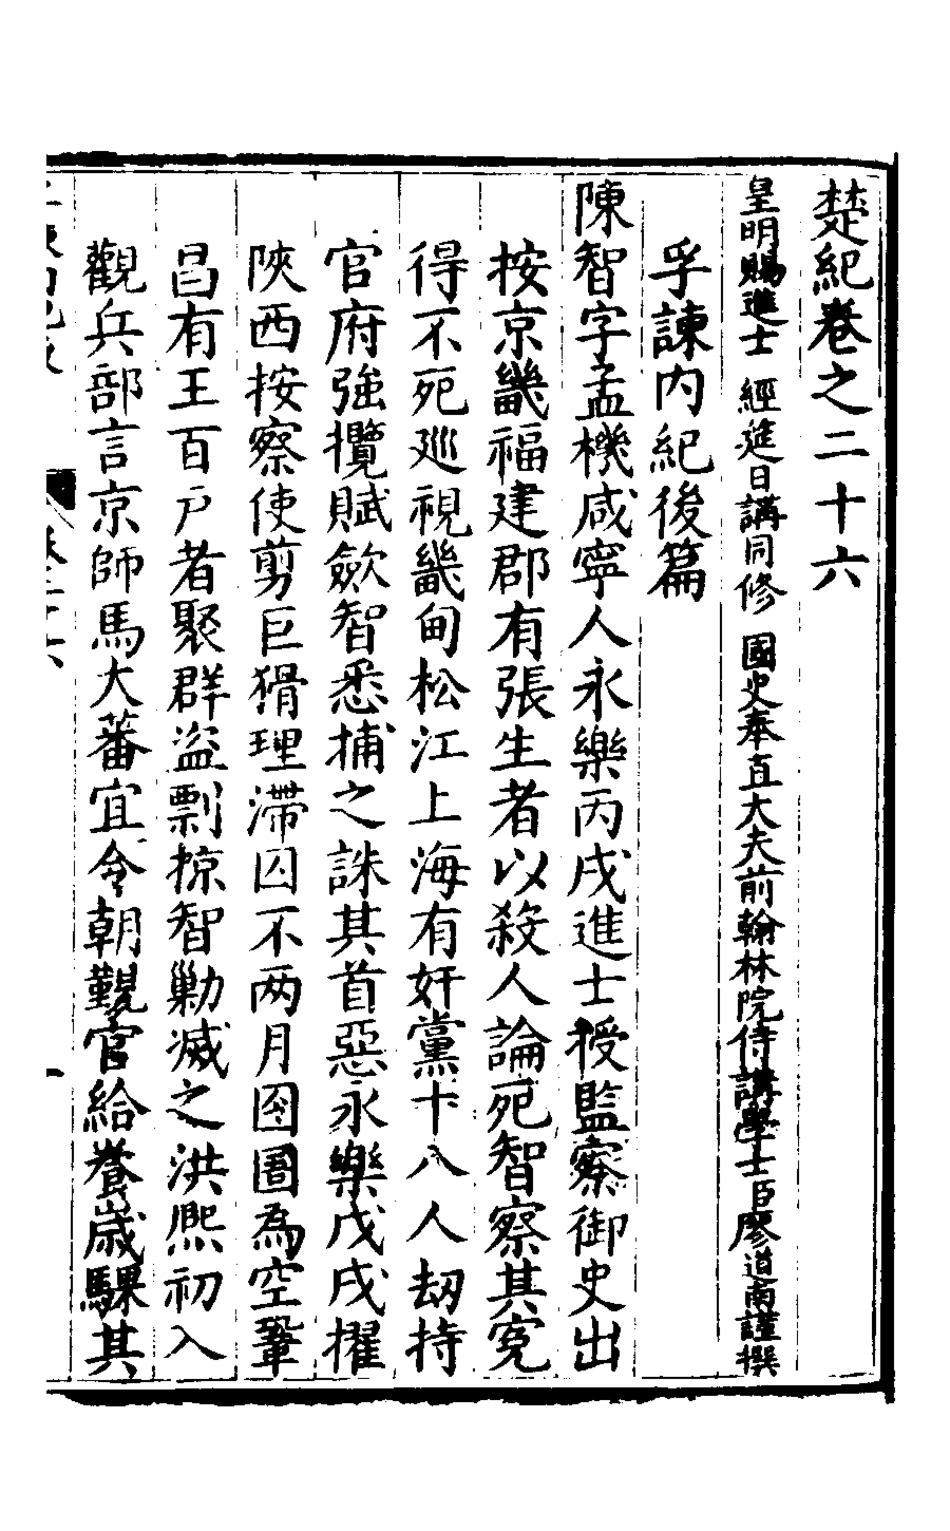 楚紀卷之二十六
皇明賜進士 經筵日講同修 國史奉直大夫前翰林院侍講學士臣廖道南謹撰
孚諫内紀後篇
陳智字孟機咸寧人永樂丙戌進士授監察御史出
按京畿福建郡有張生者以殺人論死智察其寃
得不死廵視畿甸松江上海有奸黨十八人刼持
官府強攬賦斂智悉捕之誅其首惡永樂戊戌擢
陜西按察使剪巨猾理滯囚不两月囹圄為空鞏
昌有王百戸者聚群盜剽掠智勦滅之洪熙初入
觀兵部言京師馬大蕃宜令朝覲官給養歲騍其